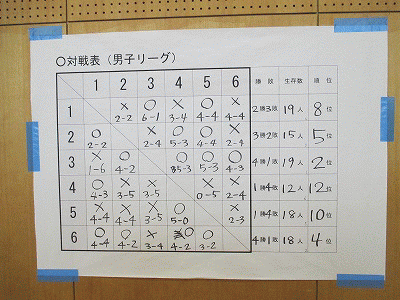 〇対戦表（男子リーグ）
1 2 3 4 5 6 勝敗 生存数 順位
1 × 2-2 ○ 6-1 × 3-4 ○ 4-4 × 4-4 2勝3敗 19人 8位
2 ○ 2-2 × 2-4 ○ 5-3 ○ 4-4 × 2-4 3勝2敗 15人 5位
3 × 1-6 ○ 4-2 ○ 5-3 ○ 5-3 ○ 4-3 4勝1敗 19人 2位
4 ○ 4-3 × 3-5 × 3-5 × 0-5 × 2-4 1勝4敗 12人 12位
5 × 4-4 × 4-4 × 3-5 ○ 5-0 × 2-3 1勝4敗 18人 10位
6 ○ 4-4 ○ 4-2 × 3-4 ○ 4-2 ○ 3-2 4勝1敗 18人 4位